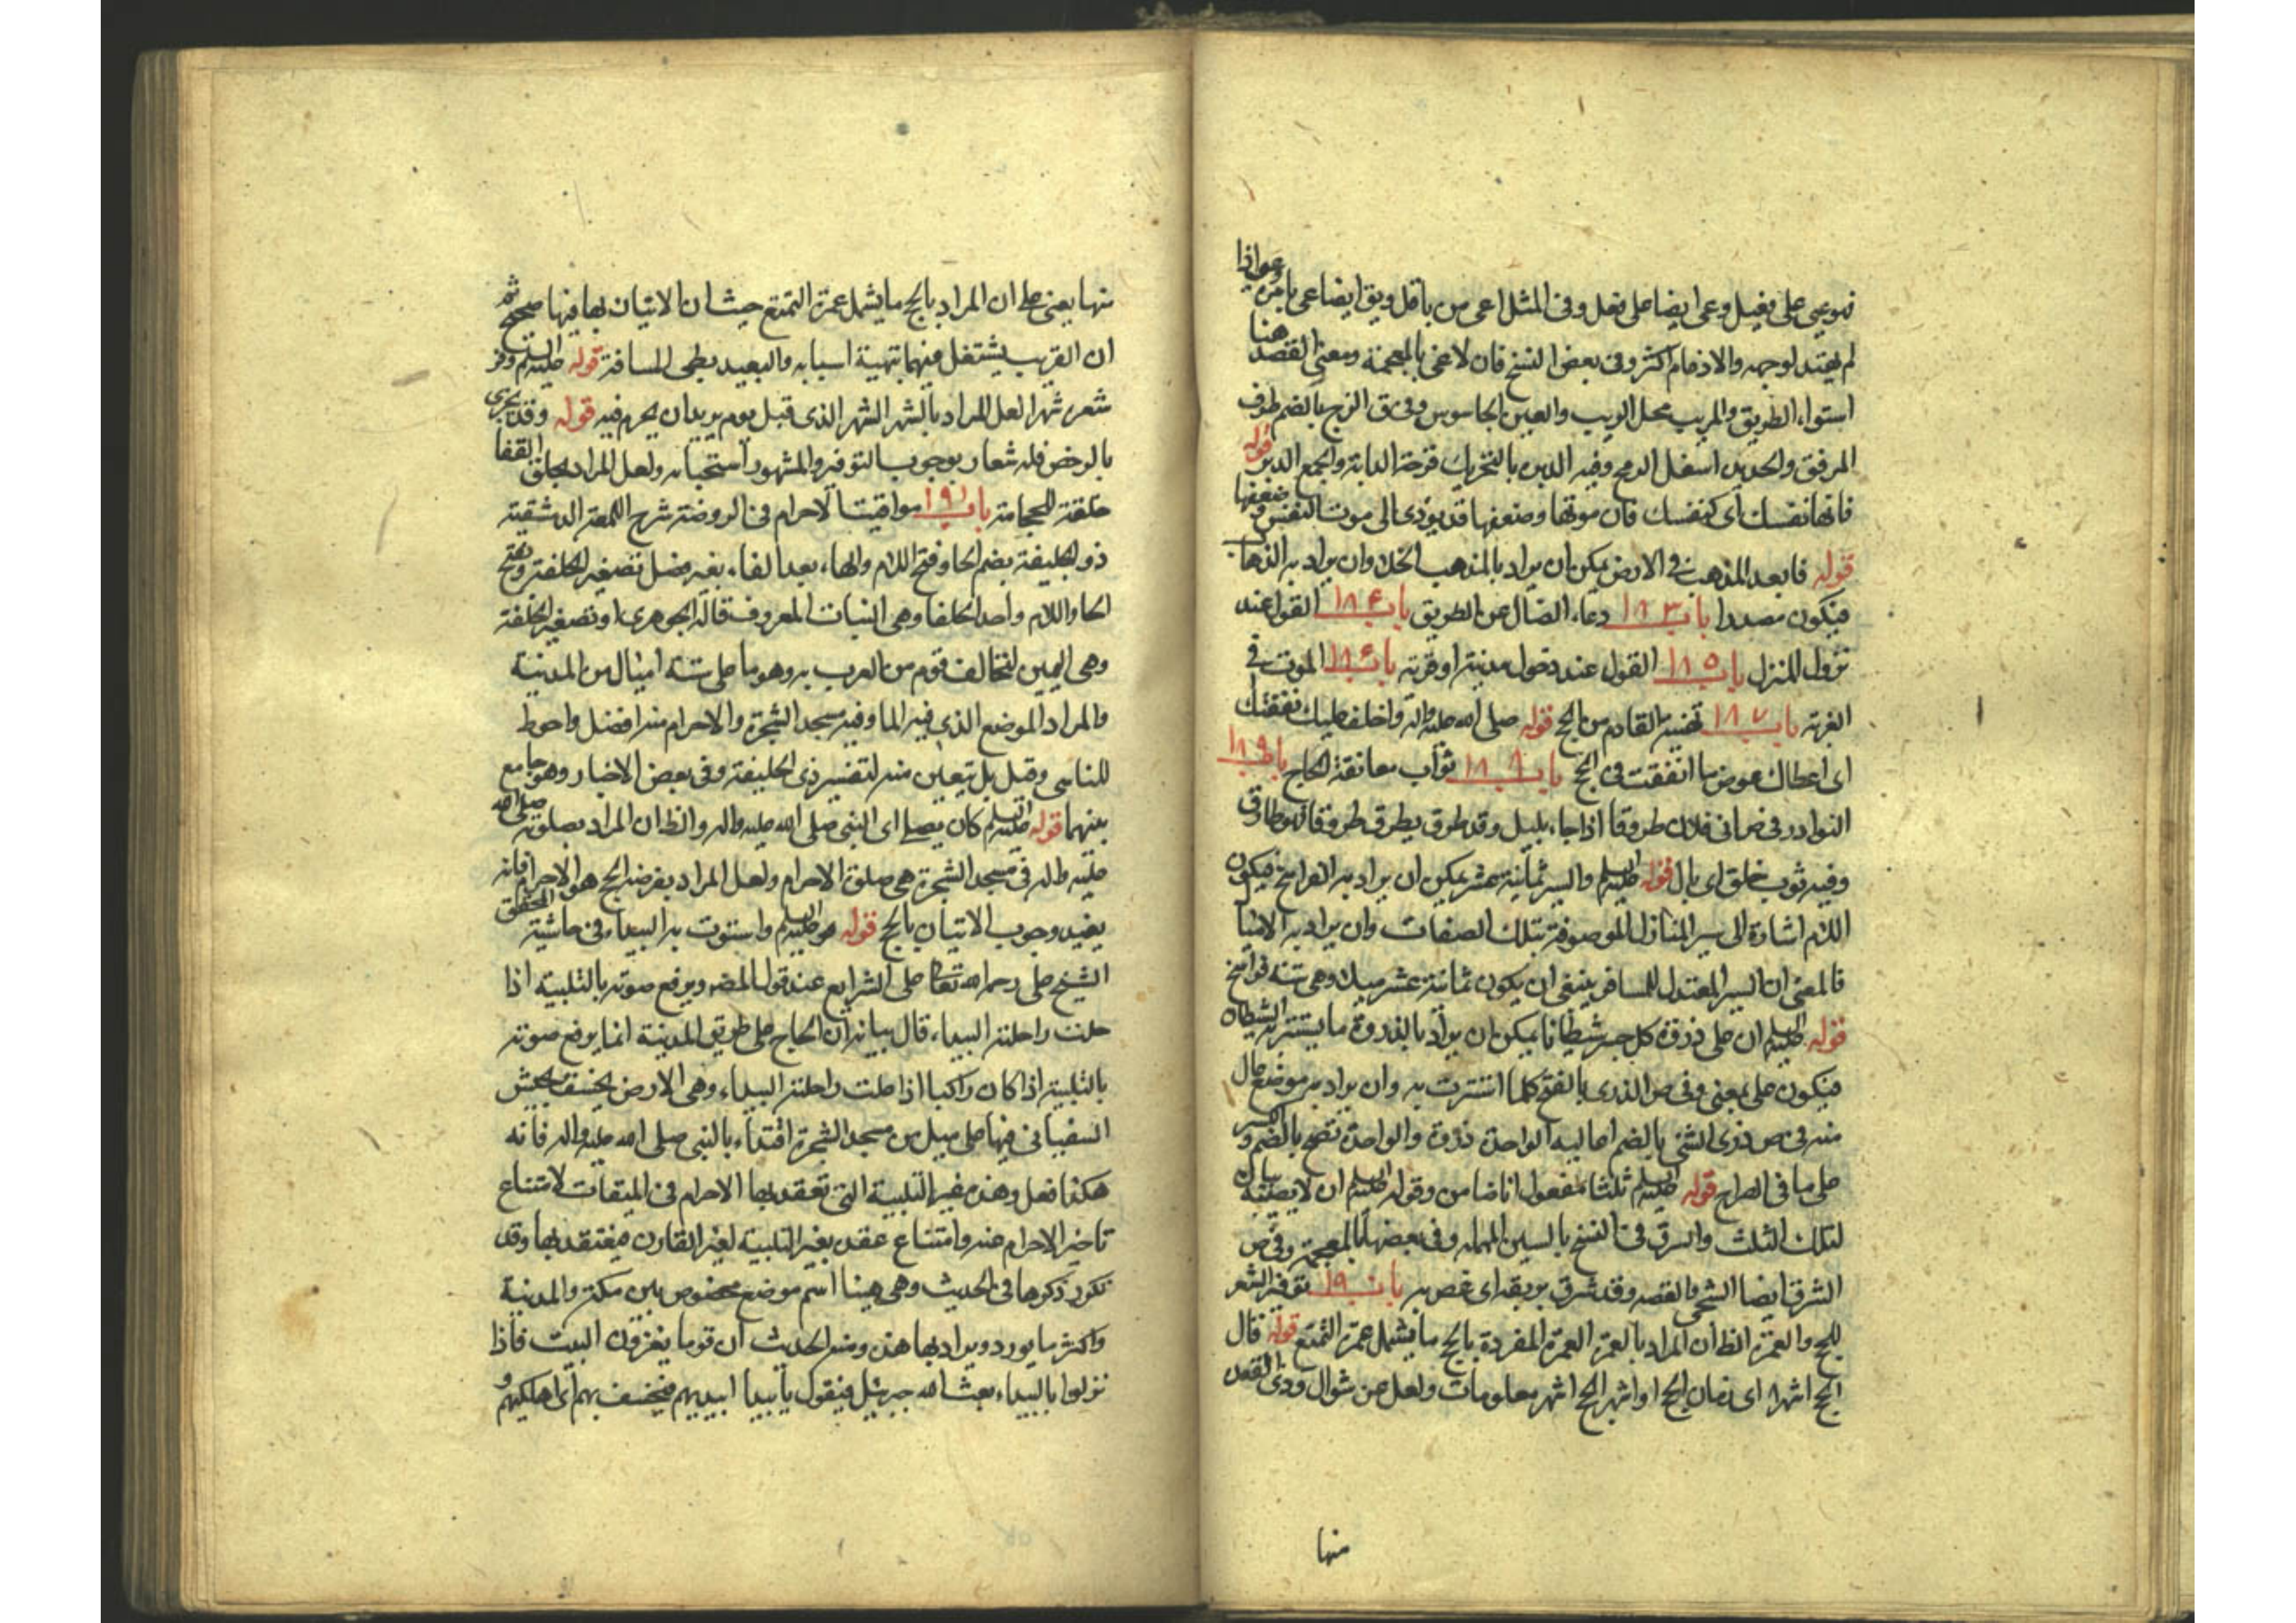 فهو عيي على فعيل وعى ايضا على فعل وفى المثل اعى من باقل ويق ايضا عى بامره وعى اذا
لم يهتد لوجهه والادغام اكثر وفى بعض النسخ فان لاغى بالمعجمة ومعنى القصد هنا
استواء الطريق والمريب محل الريب والعين الجاسوس وفى ق الزج بالضم طرف
المرفق والحديد اسفل الرمح وفيه الدبر بالتحريك قرحة الدابة والجمع الدبر قوله
فانها نفسك اى كنفسك فان موتها وضعفها قد يؤدى الى موت النفس وضعفها
قوله فابعد المذهب فى الارض يمكن ان يراد بالمذهب الخلا وان يراد به الذهاب
فيكون مصدرا باب ١٨٣ دعاء الضال عن الطريق باب ١٨۴ القول عند
نزول المنزل باب ١٨٥ القول عند دخول مدينة او قرية باب ١٨۶ الموت فى
الغربة باب ١٨٧ تهنية القادم من الحج قوله صلى الله عليه واله واخلف عليك نفقتك
اى اعطاك عوض ما انفقت فى الحج باب ١٨٨ ثواب معانقة الحاج باب ١٨٩
النوادر وفى ص اتانى فلان طروقا اذا جاء بليل وقد طرق يطرق طروقا فهو طارق
وفيه ثوب خلق اى بال قوله عليه السلم والسير ثمانية عشر يمكن ان يراد به الفراسخ فيكون
اللام اشارة الى سير المنازل الموصوفة بتلك الصفات وان يراد به الاميال
فالمعنى ان السير المعتدل للمسافر ينبغى ان يكون ثمانية عشر ميلا وهى ستة فراسخ
قوله عليه السلم ان على ذروة كل جسر شيطانا يمكن ان يراد بالذروة ما يستتر به الشيطان
فيكون على بمعنى فى وفى ص الذرى بالفتح كلما استترت به وان يراد به موضع عال
منه فى ص ذرى الشئ بالضم اعاليه الواحدة ذروة والواحدة تفتح بالضم والكسر
على ما فى الصراح قوله عليه السلم ثلثا مفعول اناضامن وقوله عليه السلم ان لا يصيبه بيان
لتلك الثلث والسرق فى النسخ بالسين المهملة وفى بعضها بالمعجمة وفى ص
الشرق ايضا الشجى والغصه وقد شرق بريقه اى غص به باب ١٩٠ توفير الشعر
للحج والعمرة الظ ان المراد بالعمرة العمرة المفردة بالحج ما يشمل عمرة التمتع قوله قال
الحج اشهر اى زمان الحج او اشهر الحج اشهر معلومات ولعل من شوال وذى القعده
منها
منها يعنى على ان المراد بالحج ما يشمل عمرة التمتع حيث ان الاتيان بها فيها صحيح ثم
ان القريب يشتغل فيهما بتهيئة اسبابه والبعيد بطى المسافة قوله عليه السلم وفر
شعره شهرا لعل المراد بالشهر الشهر الذى قبل يوم يريد ان يحرم فيه قوله وقد يجرى
بالرخص فله شعار بوجوب التوفير والمشهور استحبابه ولعل المراد بحلق القفا
حلقة للحجامة باب ١٩١ مواقيت الاحرام فى الروضة شرح اللمعة الدمشقية
ذو الحليفة بضم الحا وفتح اللام والهاء بعد الفاء بغير فصل تصغير الحلفة وبفتح
الحا واللام واحد الحلفا وهى النبات المعروف قاله الجوهرى او تصغير الحلفة
وهى اليمين لتحالف قوم من العرب به وهو ماء على ستة اميال من المدينة
والمراد الموضع الذى فيه الما وفيه مسجد الشجرة والاحرام منه افضل واحوط
للتاسى وقيل بل يتعين منه لتفسير ذى الحليفة وفى بعض الاخبار وهو جامع
بينهما قوله عليه السلم كان يصلى اى النبى صلى الله عليه واله والظ ان المراد بصلوته صلى الله
عليه واله فى مسجد الشجرة هى صلوة الاحرام ولعل المراد بفرضه الحج هو الاحرام فانه
يفيد وجوب الاتيان بالحج قوله هو عليه السلم واستوت به البيداء فى حاشية المحقق
الشيخ على رحمه الله تعالى على الشرايع عند قول المصه ويرفع صوته بالتلبية اذا
علت راحلته البيداء قال بيانه ان الحاج على طريق المدينة انما يرفع صوته
بالتلبية اذا كان راكبا اذا علت راحلته البيداء وهى الارض يخسف بجيش
السفيانى فيها على ميل من مسجد الشجرة اقتداء بالنبى صلى الله عليه واله فانه
هكذا فعل وهذه غير التلبية التى تعقد بها الاحرام فى الميقات لامتناع
تاخير الاحرام عنه وامتناع عقده بغير التلبية لغير القارن فيعتقد بها وقد
تكرر ذكرها فى الحديث وهى هيهنا اسم موضع مخصوص بين مكة والمدينة
واكثر ما يورد ويراد بها هذه ومنه الحديث ان قوما يغزون البيت فاذا
نزلوا بالبيداء بعث الله جبرئيل فيقول يا بيدا ابيديهم فيخسف بهم اى اهلكيهم و